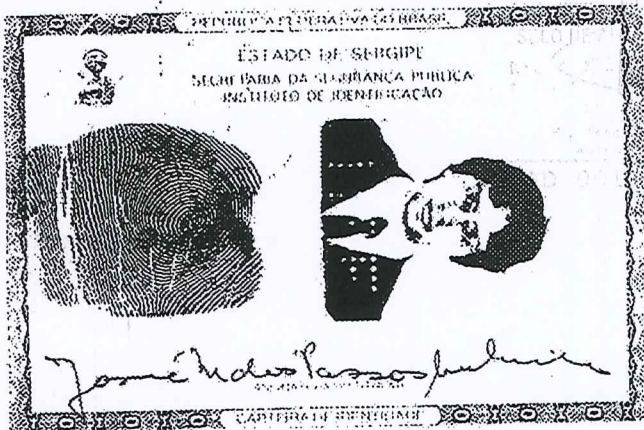 REPÚBLICA FEDERATIVA DO BRASIL
ESTADO DE SERGIPE
SECRETARIA DA SEGURANÇA PÚBLICA
INSTITUTO DE IDENTIFICAÇÃO
José dos Passos
CARTEIRA DE IDENTIDADE